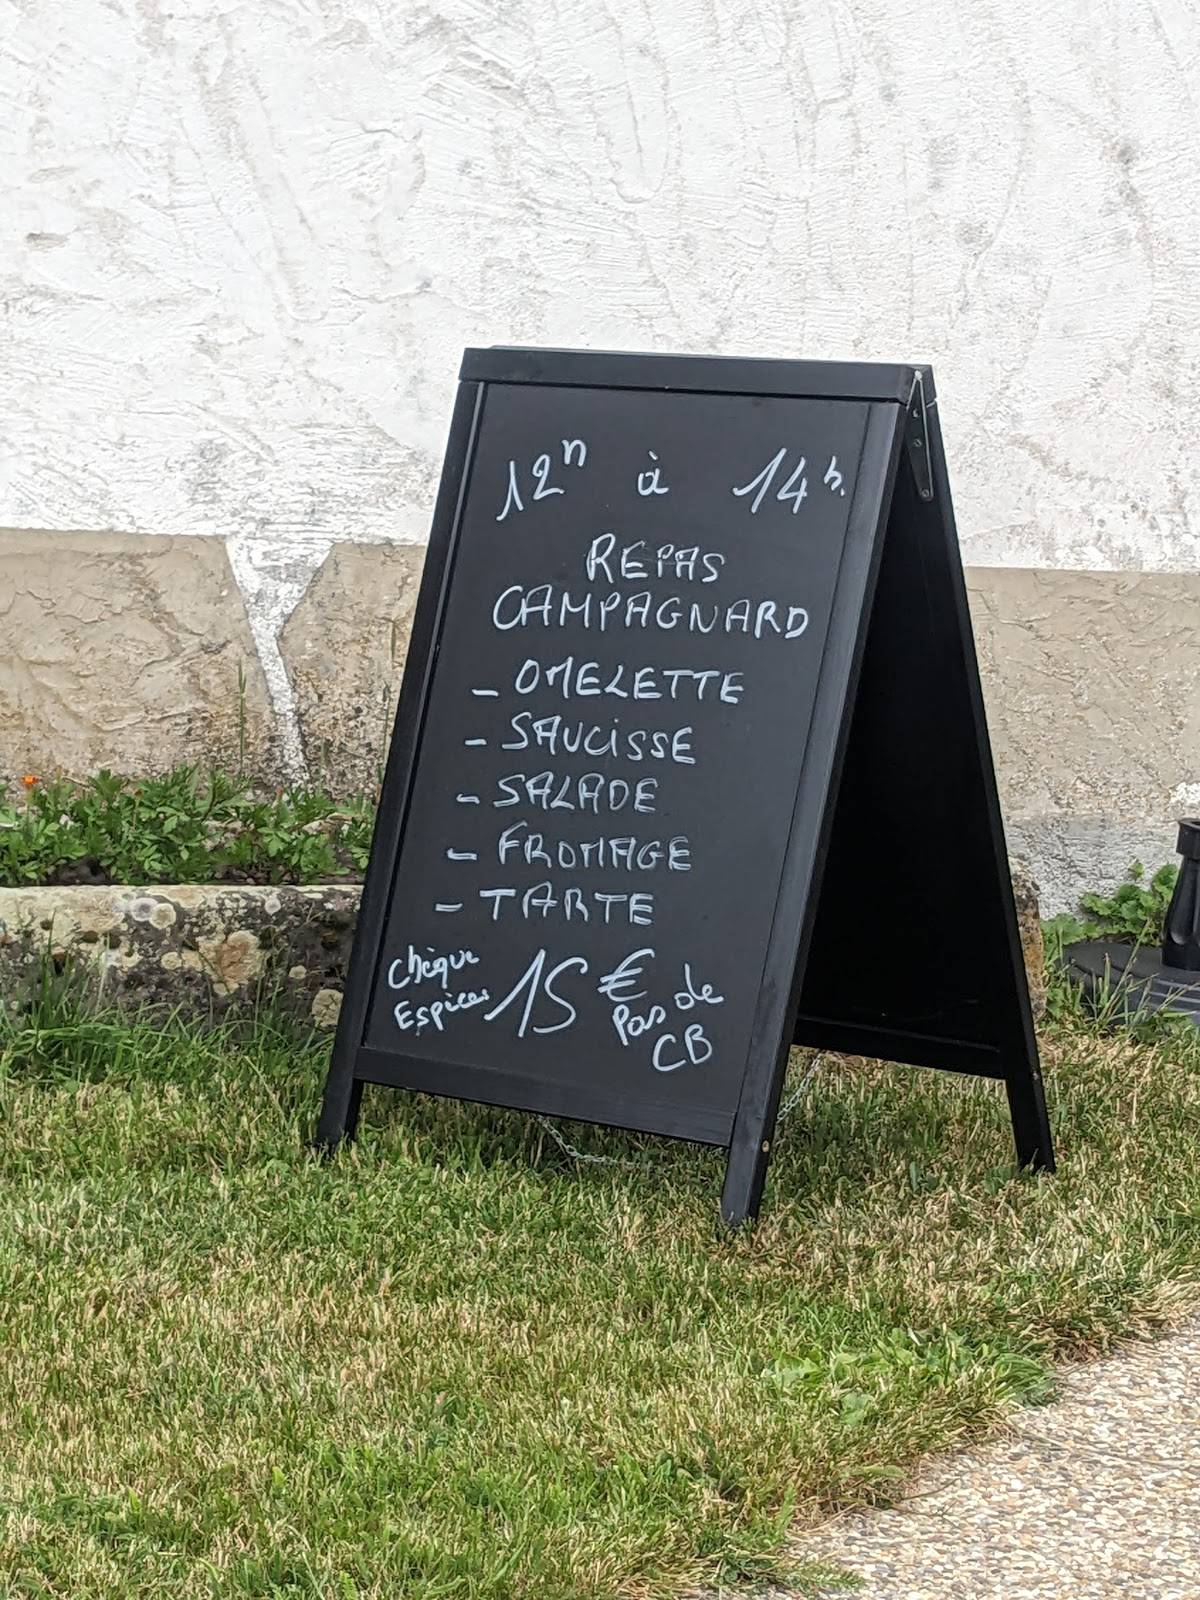 12h à 14h.
REPAS
CAMPAGNARD
- OMELETTE
- SAUCISSE
- SALADE
- FROMAGE
- TARTE
Chèque
Espèces
15 €
Pas de
CB